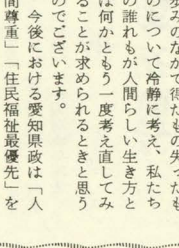 歩みのなかで得たもの失ったも
のについて冷静に考え、私たち
の誰れもが人間らしい生き方と
は何かともう一度考え直してみ
ることが求められるときと思う
のでございます。
今後における愛知県政は「人
間尊重」「住民福祉最優先」を